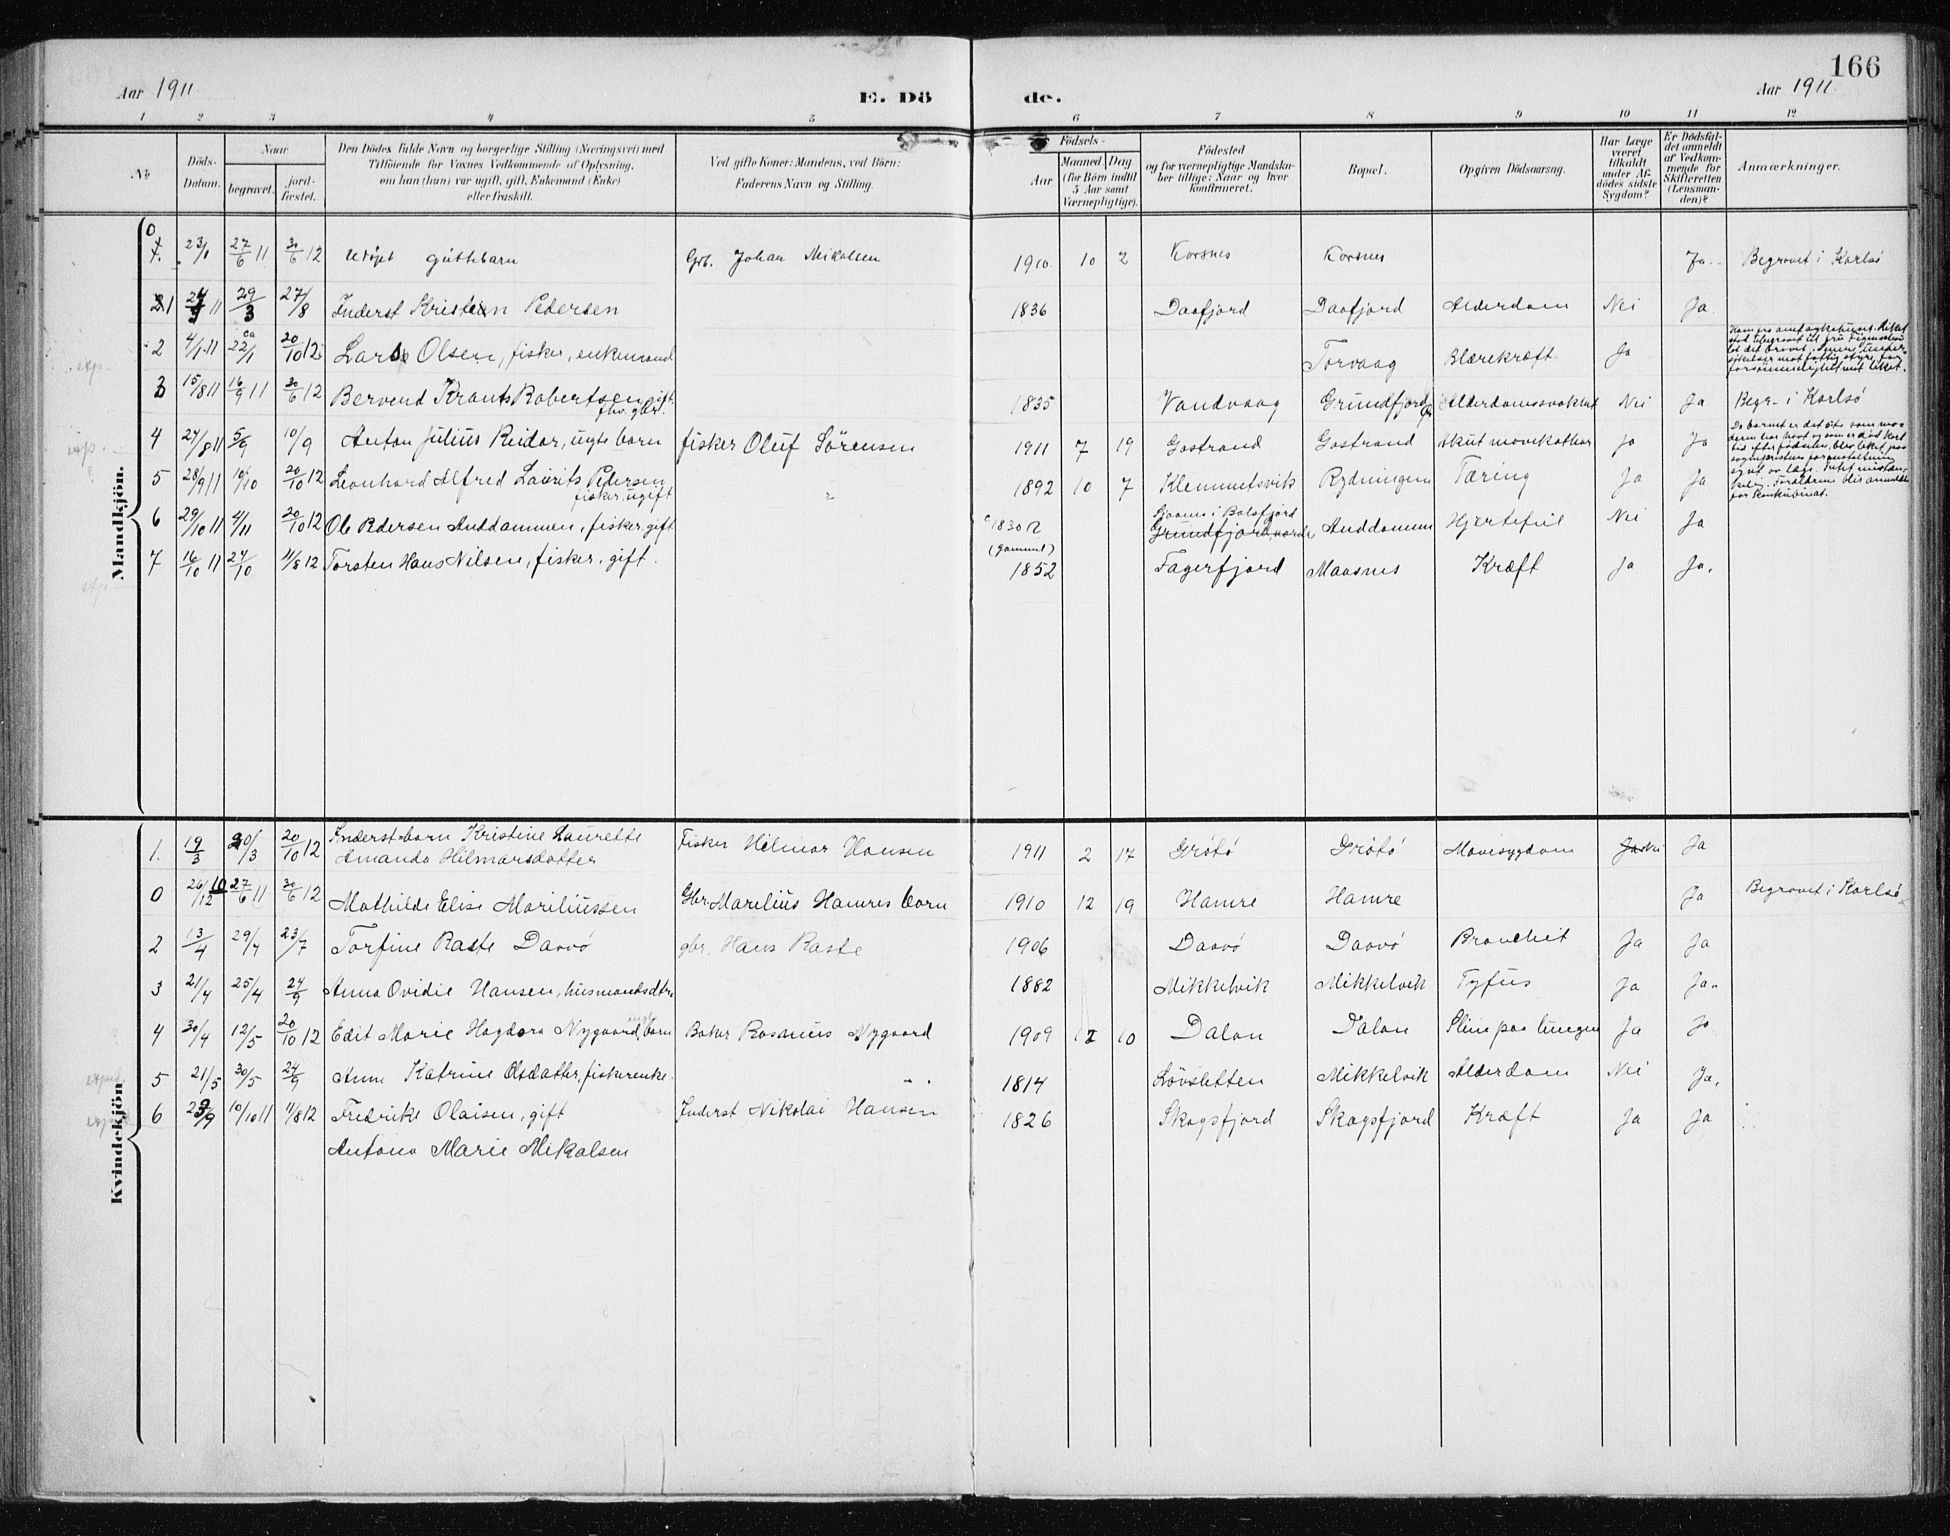 166
Aar 1911
E. Dö
de.
Aar 1911.
1 2 3 4 5 6 7 8 9 10 11 12
№
Döds-
Datum.
Naar
begravet.
jord-
fæstet.
Den Dödes fulde Navn og borgerlige Stilling (Næringsvei) med
Tilföiende for Voxnes Vedkommende af Oplysning,
om han (hun) var ugift, gift, Enkemand (Enke)
eller fraskilt.
Ved gifte Koner: Mandens, ved Börn:
Faderens Navn og Stilling.
Födsels-
Aar
Maaned Dag
(for Börn indtil
5 Aar samt
Værnepligtige).
Födested
og for værnepligtige Mandska-
ber tillige: Naar og hvor
konfirmeret.
Bopæl.
Opgiven Dödsaarsag.
Har Læge
været
tilkaldt
under Af-
dödes sidste
Sygdom?
Er Dödsfal-
det anmeldt
af Vedkom-
mende for
Skifteretten
(Lensman-
den)?
Anmærkninger.
Mandkjön.
0 23/1 27/6 11 30/6 12 udöpt guttebarn Grb. Johan Mikalsen 1910 10 2 Korsnes Korsnes Ja Begravet i Karlsö
1 11 29/3 27/8 Inderst Kristian Pedersen 1836 Daafjord Daafjord Alderdom Nei Ja
2 4/1 11 ca 22/1 20/10 12 Lars Olsen, fisker, enkemand Torvaag Blærekræft Ja
3 15/8 11 16/9 11 30/6 12 Bervend Krants Robertsen gift fhv. gbr. 1835 Vandvaag Grundfjord Alderdomssvakhet Nei Ja Begr. i Karlsö
4 27/8 11 5/9 10/9 Anton Julius Reidar, uegte barn fisker Oluf Sörensen 1911 7 19 Gostrand Gostrand Akut mavekathar Ja Ja
5 28/9 11 10/10 20/10 12 Leonhard Alfred Laurits Pedersen fisker, ugift " 1892 10 7 Klemmetsvik Rydningen Tæring Ja Ja
6 29/10 11 4/11 20/10 12 Ole Pedersen Anddammen, fisker, gift c 1830 (gammel) i Balsfjord Anddammen Hjertefeil Nei Ja
7 16/10 11 24/10 11/8 12 Torsten Hans Nilsen, fisker, gift. 1852 Fagerfjord Maasnes Kræft Ja Ja.
Kvindekjön
1. 19/3 20/3 20/10 12 Inderst-barn Kristine Laurette
Amanda Hilmarsdatter Fisker Hilmar Hansen 1911 2 17 Grötö Grötö Mavesygdom Nei Ja
0 26/12 10 27/6 11 30/6 12 Mathilde Elise Mariliussen Gbr. Marilius Hamres barn 1910 12 19 Hamre Hamre Ja Begravet i Karlsö
2 13/4 29/4 23/7 Torfine Raste Daavö gbr. Hans Raste 1906 Daavö Daavö Bronchit Ja Ja
3 21/4 25/4 24/9 Anna Ovidie Hansen, husmandsdtr 1882 Mikkelvik Mikkelvik Tyfus Ja Ja
4 30/4 12/5 20/10 12 Edit Marie Hagdora Nygaard, barn Baker Rasmus Nygaard 1909 12 10 Dalan Dalan Slim paa lungen Ja Ja
5 21/5 30/5 24/9 Ane Katrine Olsdatter, fiskerenke 1814 Lövsletten Mikkelvik Alderdom Nei Ja.
6 10/10 11 11/8 12 Fredrike Olaisen, gift Inderst Nikolai Hansen 1826 Skogsfjord Skogsfjord Kræft Ja Ja
Antona Marie Mikalsen